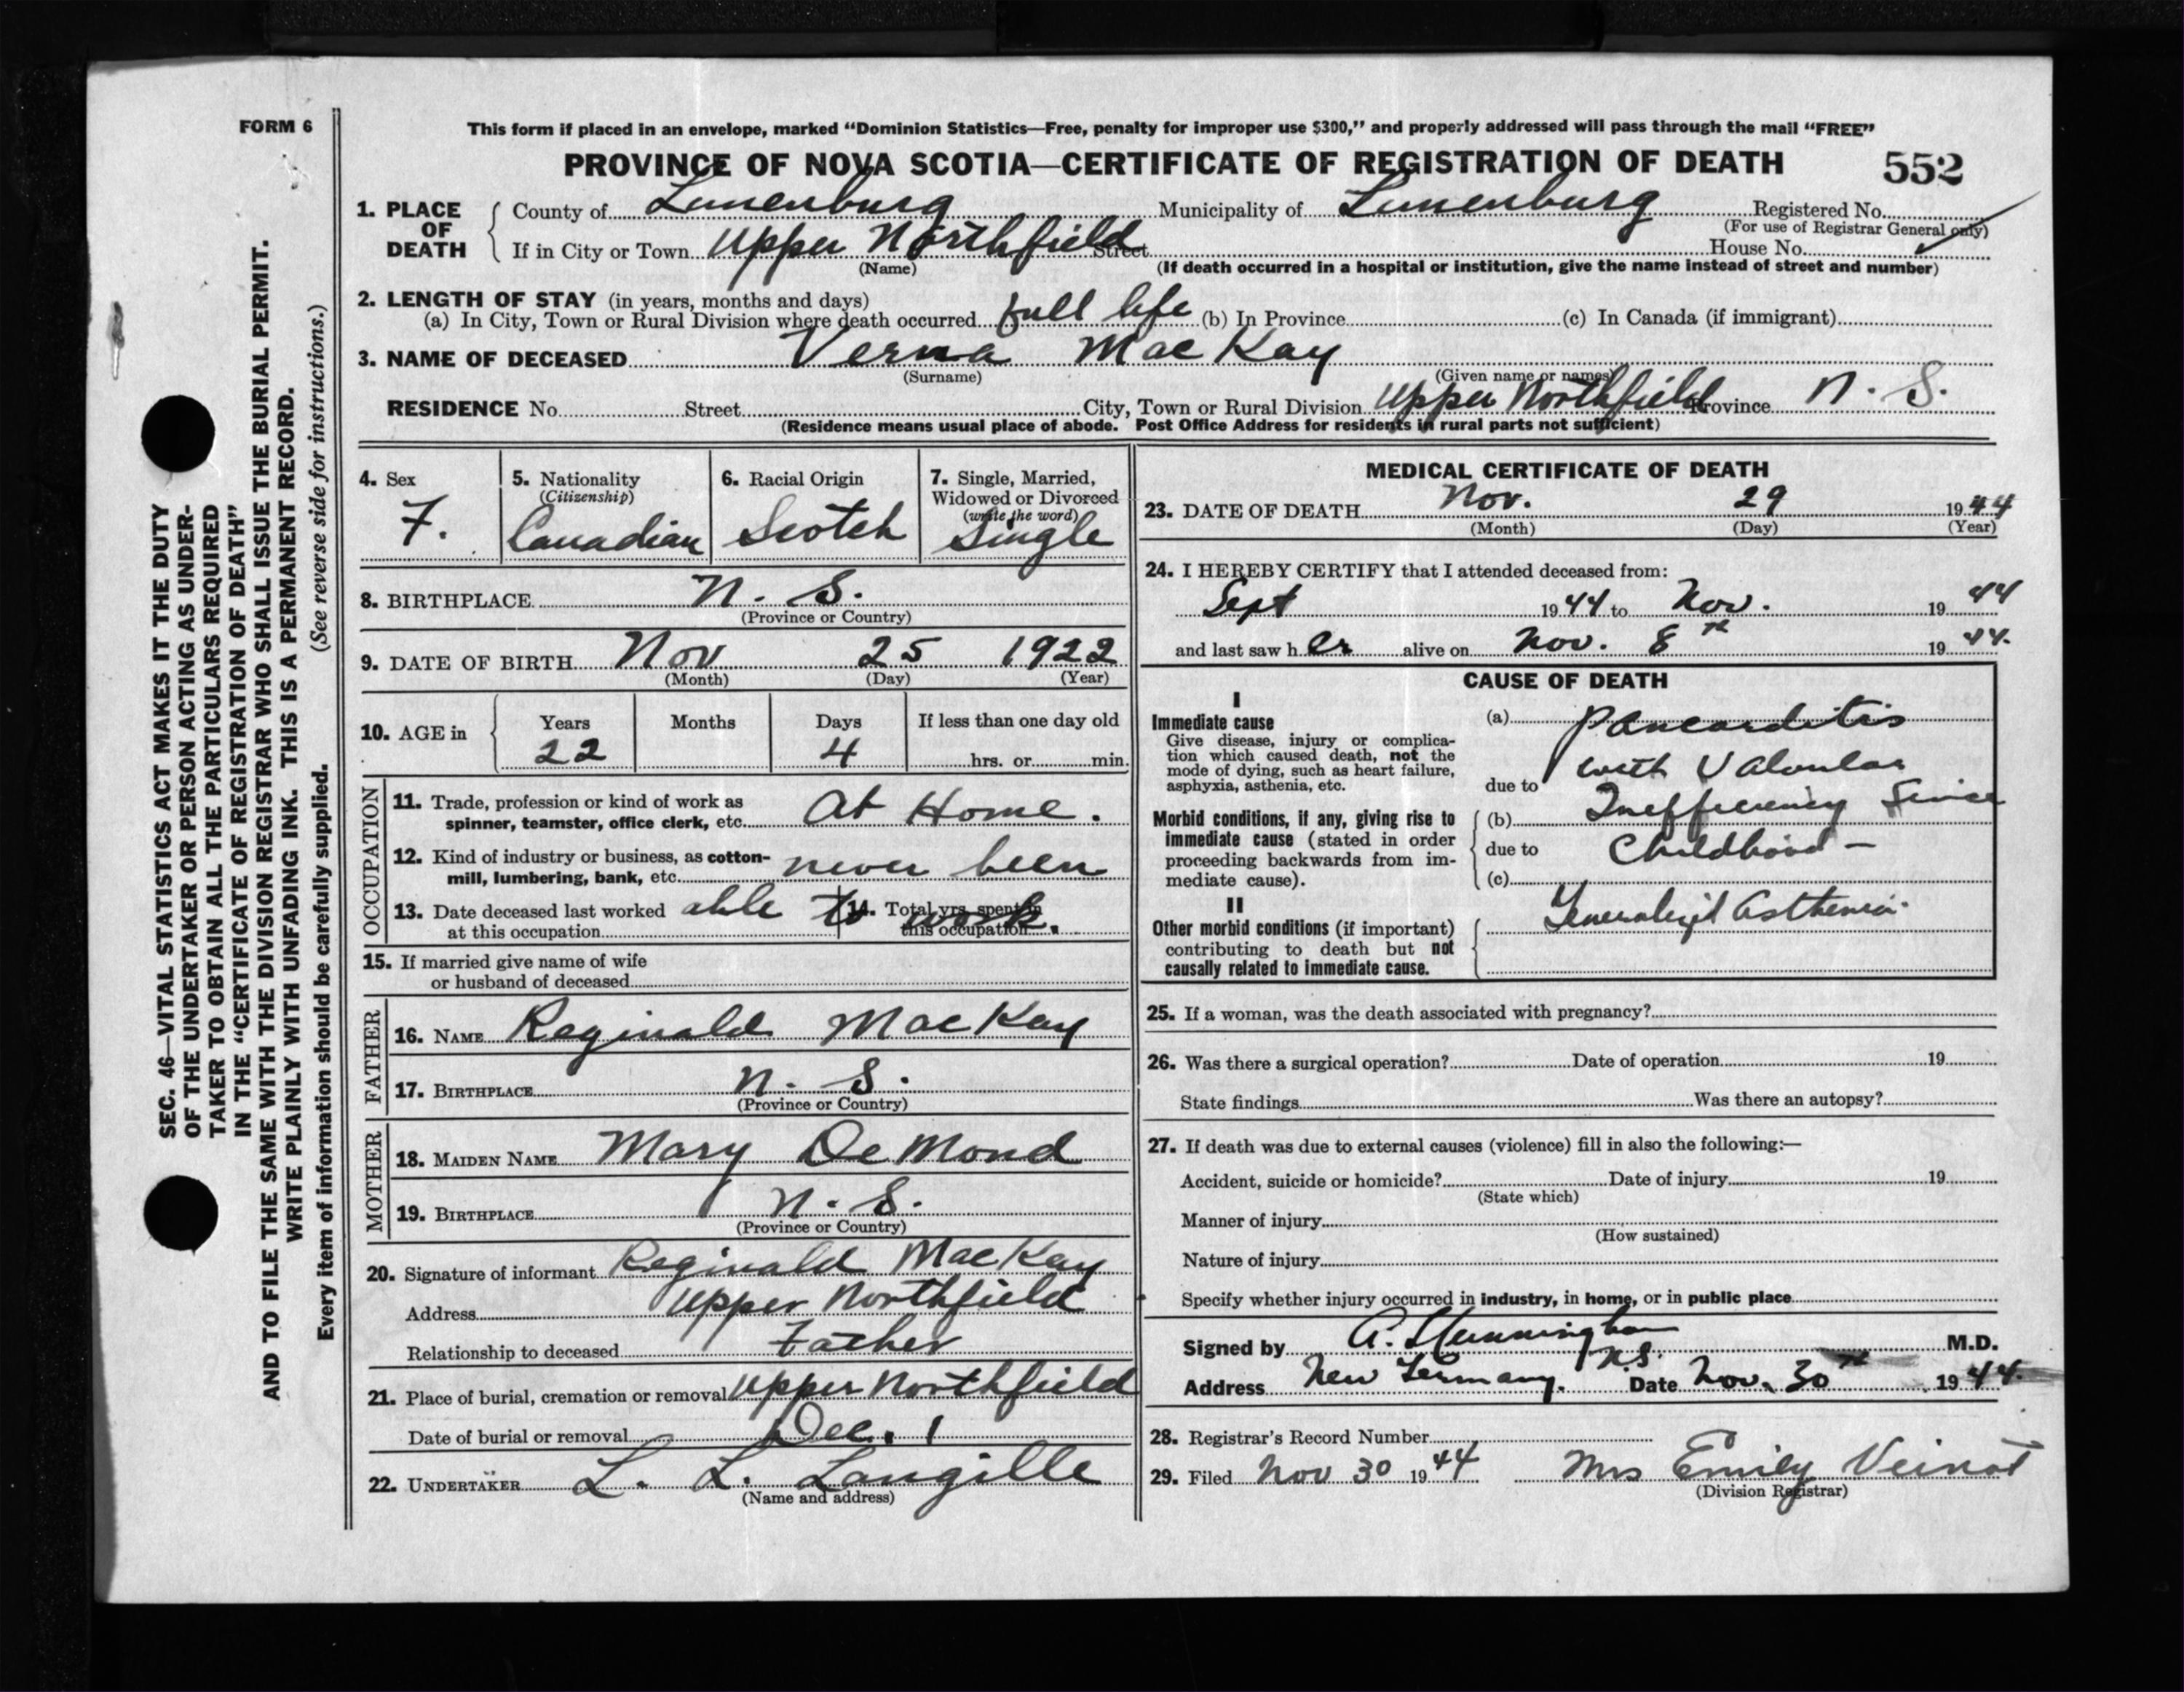 FORM 6
This form if placed in an envelope, marked “Dominion Statistics—Free, penalty for improper use $300,” and properly addressed will pass through the mail “FREE”
PROVINCE OF NOVA SCOTIA—CERTIFICATE OF REGISTRATION OF DEATH 552
1. PLACE OF DEATH County of Lunenburg Municipality of Lunenburg Registered No.
(For use of Registrar General only)
If in City or Town Upper Northfield Street House No.
(Name) (If death occurred in a hospital or institution, give the name instead of street and number)
2. LENGTH OF STAY (in years, months and days)
(a) In City, Town or Rural Division where death occurred full life (b) In Province (c) In Canada (if immigrant)
3. NAME OF DECEASED Verna MacKay
(Surname) (Given name or names)
RESIDENCE No. Street City, Town or Rural Division Upper Northfield Province N. S.
(Residence means usual place of abode. Post Office Address for residents in rural parts not sufficient)
4. Sex F.
5. Nationality (Citizenship) Canadian
6. Racial Origin Scotch
7. Single, Married, Widowed or Divorced (write the word) Single
8. BIRTHPLACE N. S.
(Province or Country)
9. DATE OF BIRTH Nov 25 1922
(Month) (Day) (Year)
10. AGE in Years 22 Months Days 4 If less than one day old hrs. or min.
OCCUPATION
11. Trade, profession or kind of work as At Home.
spinner, teamster, office clerk, etc.
12. Kind of industry or business, as cotton- never been
mill, lumbering, bank, etc.
13. Date deceased last worked able to 14. Total yrs. spent in work.
at this occupation this occupation
15. If married give name of wife
or husband of deceased
FATHER
16. NAME Reginald MacKay
17. BIRTHPLACE N. S.
(Province or Country)
MOTHER
18. MAIDEN NAME Mary DeMond
19. BIRTHPLACE N. S.
(Province or Country)
20. Signature of informant Reginald MacKay
Address Upper Northfield
Relationship to deceased Father
21. Place of burial, cremation or removal Upper Northfield
Date of burial or removal Dec. 1
22. UNDERTAKER L. L. Langille
(Name and address)
MEDICAL CERTIFICATE OF DEATH
23. DATE OF DEATH Nov. 29 1944
(Month) (Day) (Year)
24. I HEREBY CERTIFY that I attended deceased from:
Sept 1944 to Nov. 19 44
and last saw h er alive on Nov. 8th 19 44.
CAUSE OF DEATH
I
Immediate cause (a) Pancarditis
Give disease, injury or complica-
tion which caused death, not the
mode of dying, such as heart failure,
asphyxia, asthenia, etc. due to with Valvular
Morbid conditions, if any, giving rise to (b) Inefficiency Since
immediate cause (stated in order
proceeding backwards from im- due to Childhood —
mediate cause). (c)
II
Other morbid conditions (if important) Generalized Asthenia.
contributing to death but not
causally related to immediate cause.
25. If a woman, was the death associated with pregnancy?
26. Was there a surgical operation? Date of operation 19
State findings Was there an autopsy?
27. If death was due to external causes (violence) fill in also the following:—
Accident, suicide or homicide? Date of injury 19
(State which)
Manner of injury
(How sustained)
Nature of injury
Specify whether injury occurred in industry, in home, or in public place
Signed by A. M.D.
Address New Germany. N.S. Date Nov. 30th 1944.
28. Registrar's Record Number
29. Filed Nov 30 1944 Mrs Emily Veinot
(Division Registrar)
SEC. 46—VITAL STATISTICS ACT MAKES IT THE DUTY
OF THE UNDERTAKER OR PERSON ACTING AS UNDER-
TAKER TO OBTAIN ALL THE PARTICULARS REQUIRED
IN THE “CERTIFICATE OF REGISTRATION OF DEATH”
AND TO FILE THE SAME WITH THE DIVISION REGISTRAR WHO SHALL ISSUE THE BURIAL PERMIT.
WRITE PLAINLY WITH UNFADING INK. THIS IS A PERMANENT RECORD.
Every item of information should be carefully supplied. (See reverse side for instructions.)